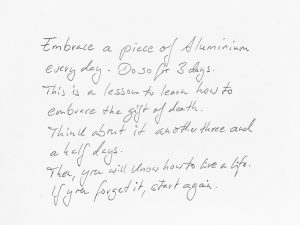 Embrace a piece of Aluminium
every day. Do so for 3 days.
This is a lesson to learn how to
embrace the gift of death.
Think about it another three and
a half days.
Then, you will know how to live a life.
If you forget it, start again.